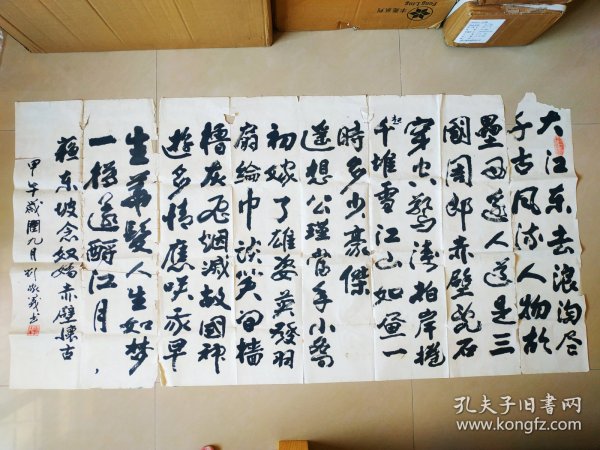 大江东去浪淘尽
千古风流人物故
垒西边人道是三
國周郎赤壁乱石
穿空驚涛拍岸捲
起千堆雪江山如画一
時多少豪傑
遥想公瑾當年小喬
初嫁了雄姿英發羽
扇纶巾谈笑间樯
橹灰飞烟滅故國神
遊多情應咲我早
生華髮人生如梦
一樽還酹江月
蘇东坡念奴娇赤壁懷古
甲午歲閏九月
孔夫子旧書网
www.kongfz.com